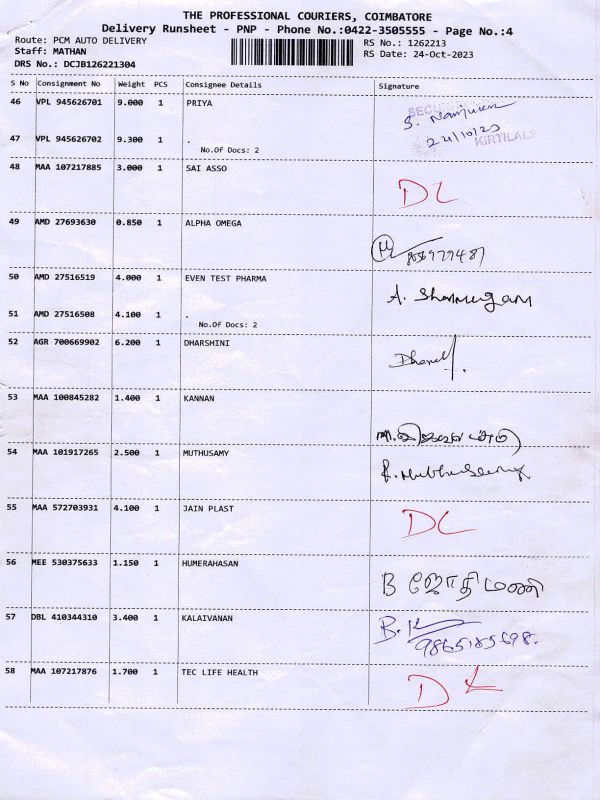 THE PROFESSIONAL COURIERS, COIMBATORE
Delivery Runsheet - PNP - Phone No.:0422-3505555 - Page No.:4
Route: PCM AUTO DELIVERY RS No.: 1262213
Staff: MATHAN RS Date: 24-Oct-2023
DRS No.: DCJB126221304
S No Consignment No Weight PCS Consignee Details Signature
46 VPL 945626701 9.000 1 PRIYA
24/10/23
47 VPL 945626702 9.300 1 . KIRTILALS
No.Of Docs: 2
48 MAA 107217885 3.000 1 SAI ASSO
DL
49 AMD 27693630 0.850 1 ALPHA OMEGA
50 AMD 27516519 4.000 1 EVEN TEST PHARMA
A. Shanmugam
51 AMD 27516508 4.100 1 .
No.Of Docs: 2
52 AGR 700669902 6.200 1 DHARSHINI
53 MAA 100845282 1.400 1 KANNAN
54 MAA 101917265 2.500 1 MUTHUSAMY
55 MAA 572703931 4.100 1 JAIN PLAST
DL
56 MEE 530375633 1.150 1 HUMERAHASAN
B ஜோதிமணி
57 DBL 410344310 3.400 1 KALAIVANAN
58 MAA 107217876 1.700 1 TEC LIFE HEALTH
DL